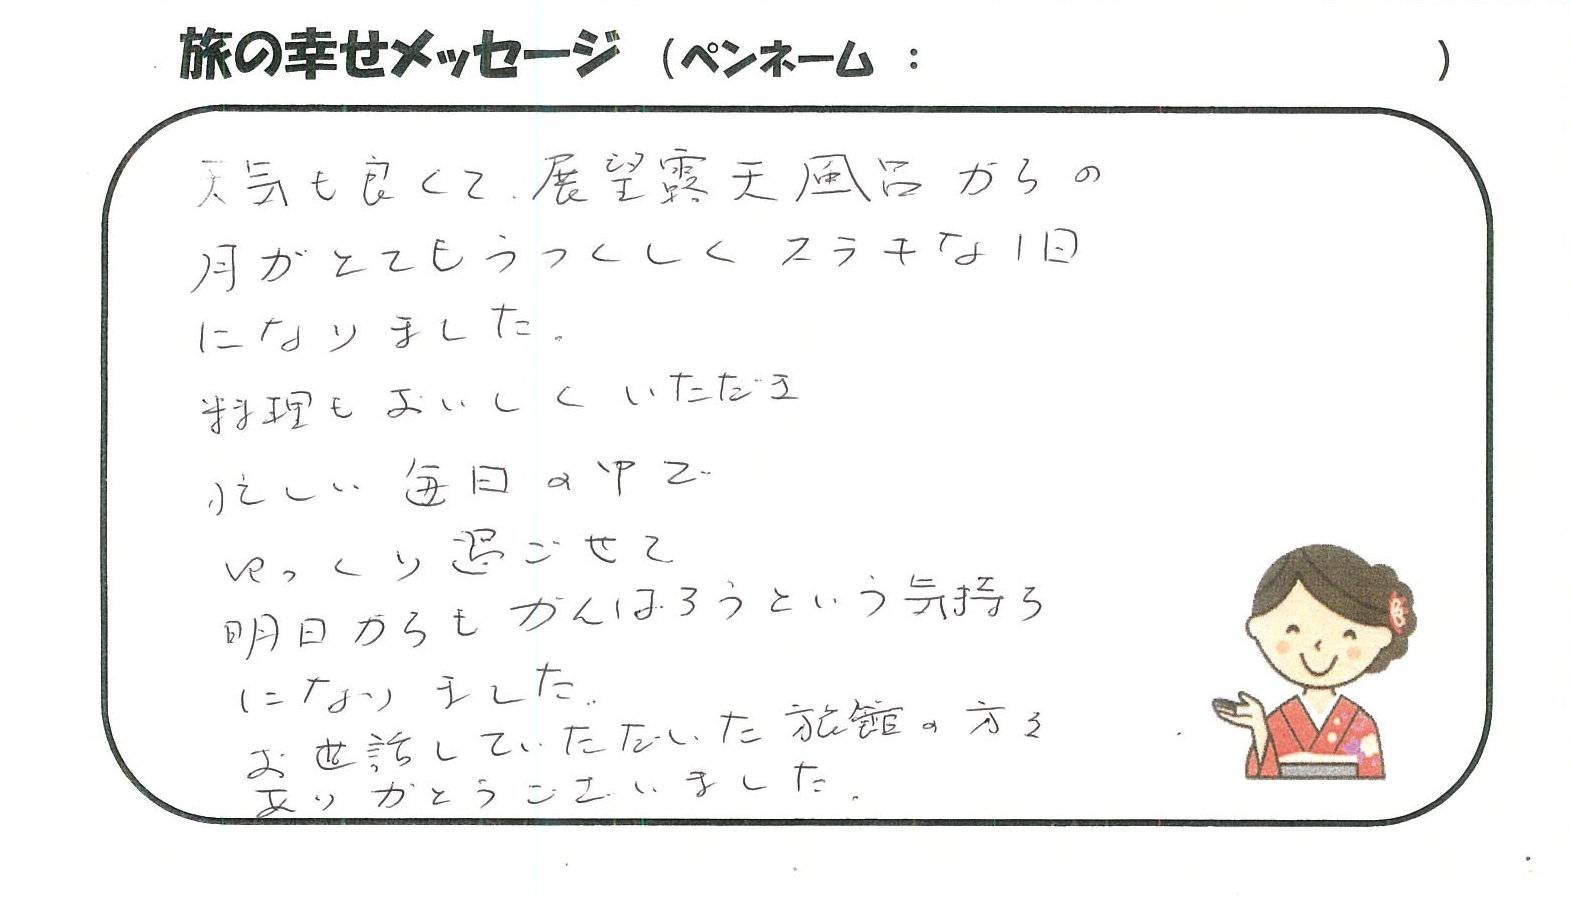 旅の幸せメッセージ (ペンネーム : )
天気も良くて、展望露天風呂からの
月がとてもうつくしく ステキな1日
になりました。
料理もおいしくいただき
忙しい毎日の中で
ゆっくり過ごせて
明日からもがんばろうという気持ち
になりました。
お世話していただいた旅館の方々
ありがとうございました。